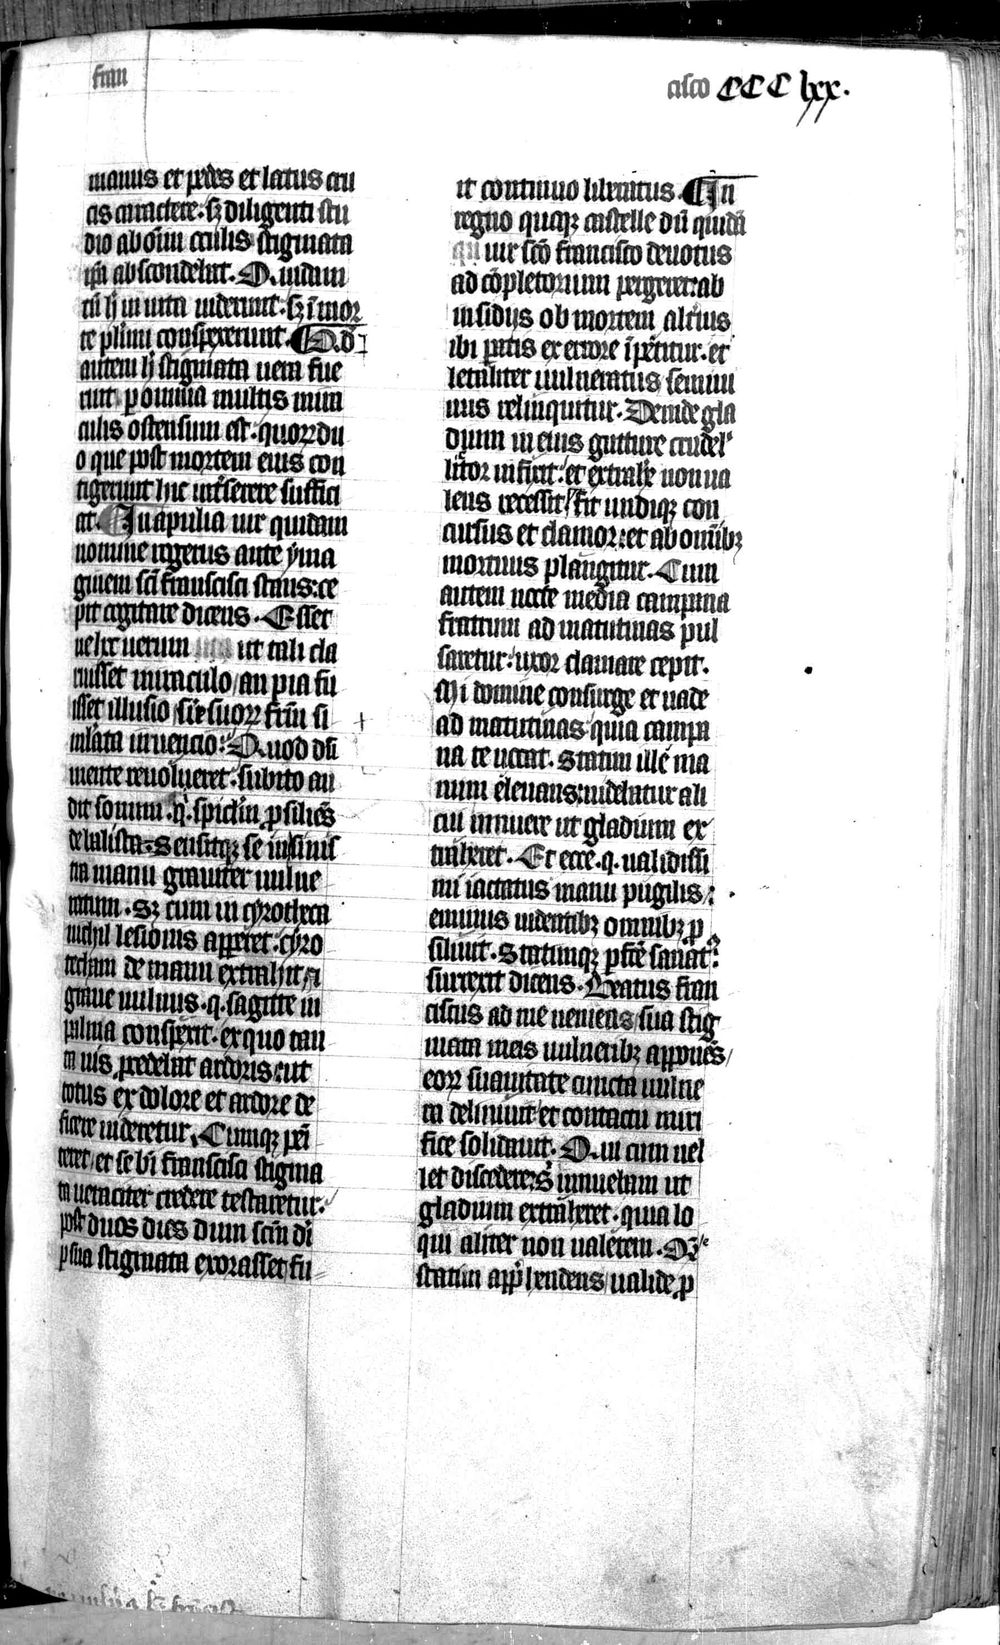 fran
cisco CCC lxx.
manus et pedes et latus cru
cis caractere. sꝫ diligenti stu
dio ab oīm oculis stigmata
ip̄a abscondebat. Quidam
tn̄ h̄ in uita uiderunt. sꝫ ī mor
te plīmi conspexerunt. ¶ Qd̄
autem h̄ stigmata uera fue
runt ꝑ omnia multis mira
culis ostensum est. quoꝝ du
o que post mortem eius con
tigerunt hic int̄serere suffici
at. ¶ In apulia uir quidam
nomine rogerus ante ymа
ginem sc̄i francisci stans: ce
pit cogitare dicens. Esset
ne hoc uerum ut tali cla
ruisset miraculo / an pia fu
isset illusio / siue suoꝝ fr̄m si
mlata inuencio: Quod dū
mente reuolueret. subito au
dit sonum .q. spiclm̄ ꝓsiliēs
de balista. Sensitqꝫ se in sinis
tra manu grauiter uulne
ratum. Sꝫ cum in cyrotheca
nichil lesionis apperet. cyro
techam de manu extrahit /
graue uulnus .q. sagitte in
palma conspexit. ex quo tan
ta uis procedebat ardoris: ut
totus ex dolore et ardore de
ficere uideretur. Cumqꝫ peī
teret / et se bī francisci stigma
ta ueraciter credere testaretur.
post duos dies dum scm̄ dī
p sua stigmata exorasset fu
it continuo liberatus. ¶ In
regno quoqꝫ castelle dū quidā
uir sc̄o francisco deuotus
ad cōpletorium pergeret: ab
insidijs ob mortem alterius
ibi paratis ex errore īpetitur. et
letaliter uulneratus semiui
uus relinquitur. Deinde gla
dium in eius gutture crudel'
lit̄or infixit: et extrahe non ua
lens recessit / Fit undiqꝫ con
cursus et clamor: et ab omībꝫ
mortuus plangitur. Cum
autem nocte media campana
fratrum ad matutinas pul
saretur: uxor clamare cepit.
Mi domine consurge et uade
ad matutinas quia campa
na te uocat. Statim ille ma
num eleuans: uidebatur ali
cui innuere ut gladium ex
traheret. Et ecce .q. ualidissi
mi iactatus manu pugilis:
eminus uidentibꝫ omnibꝫ ꝓ
siliuit. Statimqꝫ pfc̄e sanat9
surrexit dicens. Beatus fran
ciscus ad me ueniens / sua stig
mata meis uulneribꝫ apponēs /
eoꝝ suauitate cuncta uulne
ra deliniuit et contactu miri
fice solidauit. Qui cum uel
let discedere: s̄ innuebam ut
gladium extraheret. quia lo
qui aliter non ualerem. Quē
statim app̄hendens / ualide ꝓ